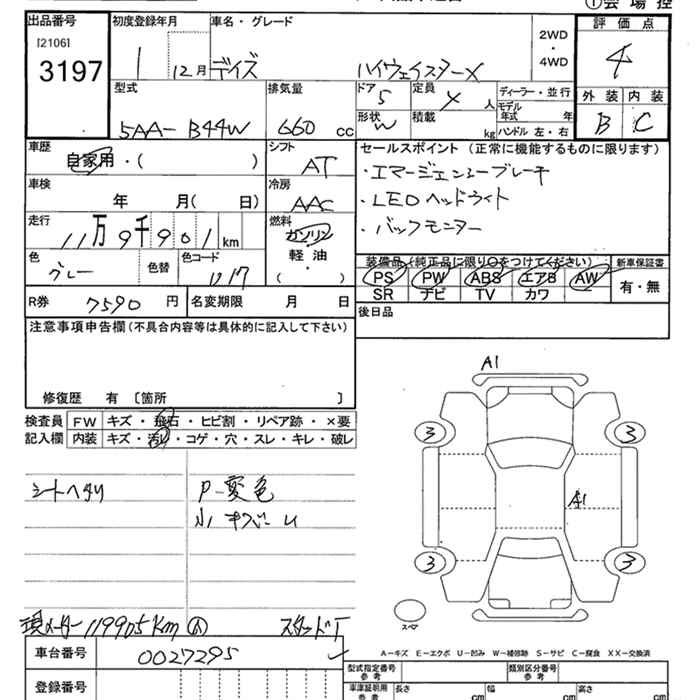 出品番号 初度登録年月 車名・グレード 2WD・4WD 評価点
[2106]
3197 1 12月 デイズ ハイウェイスターX 4
型式 排気量 ドア 定員 ディーラー・並行 外装 内装
5AA-B44W 660 cc 5 X 人 モデル年式 年 B C
形状 W 積載 kg ハンドル 左・右
車歴 シフト セールスポイント (正常に機能するものに限ります)
自家用・( ) AT ・エマージェンシーブレーキ
車検 冷房 ・LEDヘッドライト
年 月( 日) AAC ・バックモニター
走行 燃料
11万9千901km ガソリン
色 色替 色コード 軽・油
グレー ( ) 装備品(純正品に限り○をつけてください) 新車保証書
PS PW ABS エアB AW 有・無
SR ナビ TV カワ
R券 7590 円 名変期限 月 日 後日品
注意事項申告欄(不具合内容等は具体的に記入して下さい)
修復歴 有 〔箇所 〕
検査員 FW キズ・飛石・ヒビ割・リペア跡・×要
記入欄 内装 キズ・汚れ・コゲ・穴・スレ・キレ・破レ
A1
3 3
シートヘタリ P-変色
A1
3 3
現メーター119905km スタッドT
スペア
A-キズ E-エクボ U-凹み W-補修跡 S-サビ C-腐食 XX-交換済
車台番号 0027295 型式指定番号 参考 類別区分番号 参考
登録番号 車庫証明用 参考 長さ cm 幅 cm 高さ cm